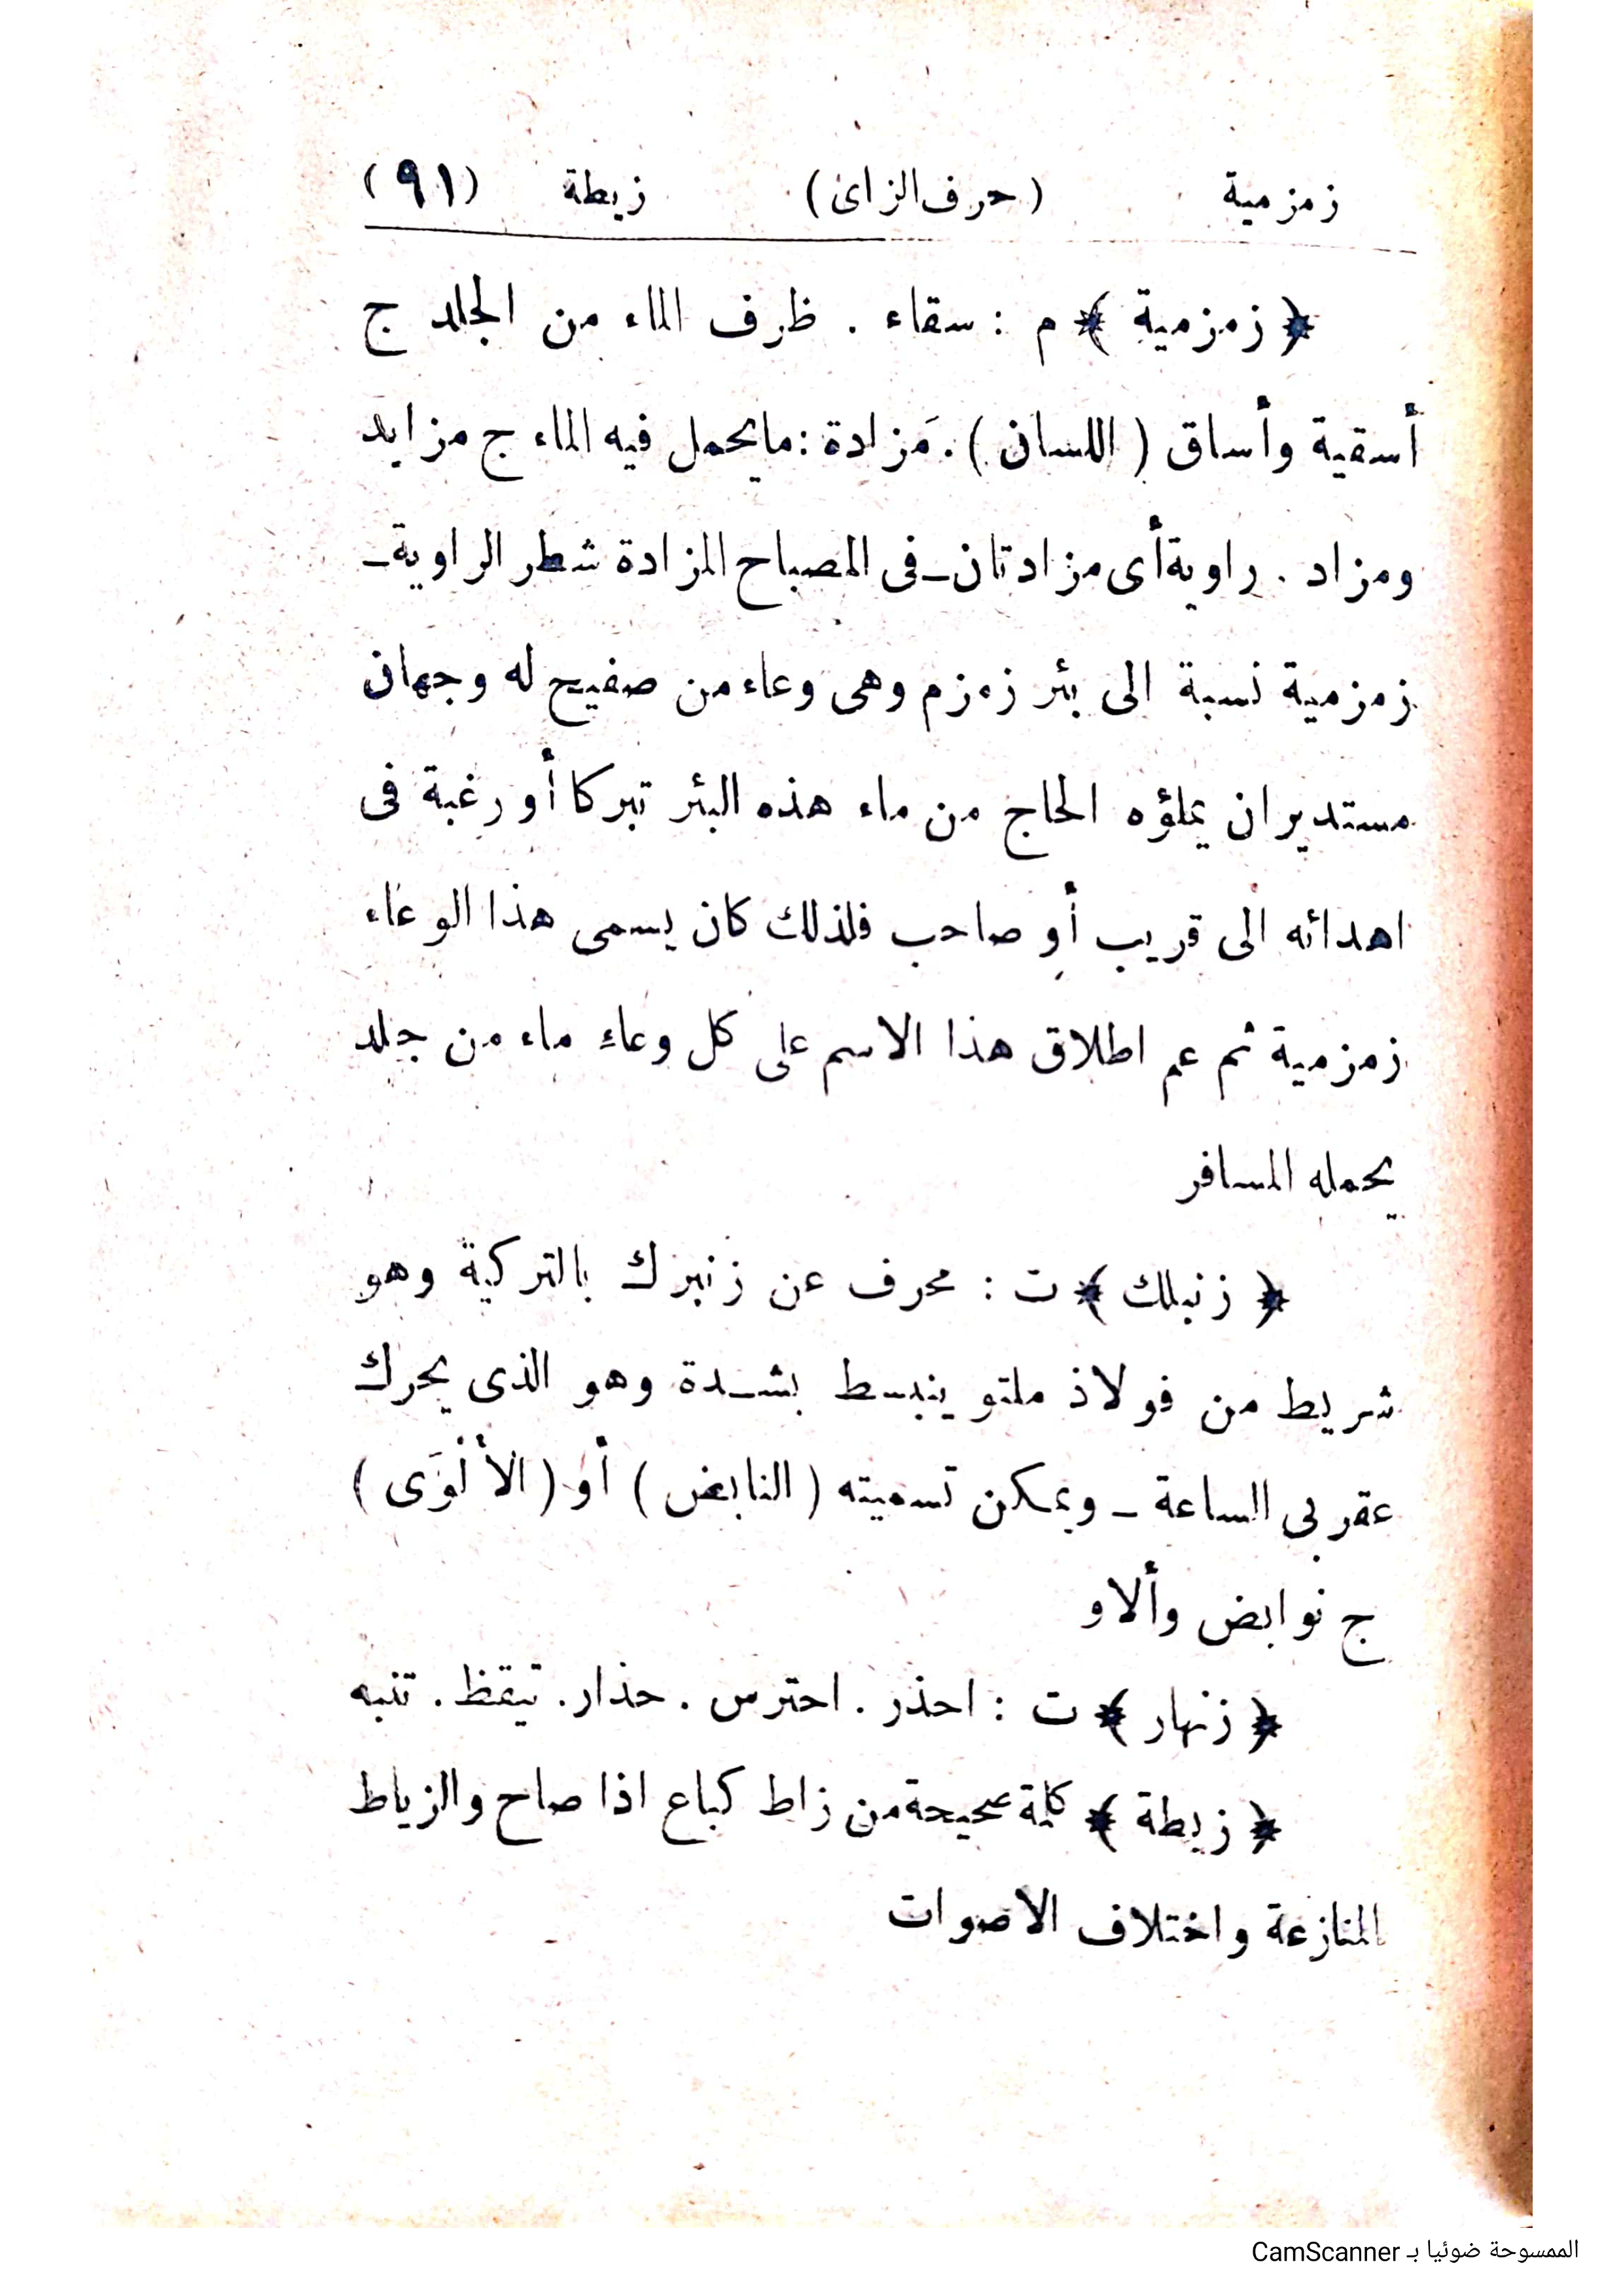 زمزمية (حرف الزاى) زيطة (٩١)
﴿ زمزمية ﴾ م : سقاء . ظرف الماء من الجلد ج
أسقية وأساق ( اللسان ) . مَزادة : مايحمل فيه الماء ج مزايد
ومزاد . راوية أى مزادتان ــ فى المصباح المزادة شطر الراوية ــ
زمزمية نسبة الى بئر زمزم وهى وعاء من صفيح له وجهان
مستديران يملؤه الحاج من ماء هذه البئر تبركا أو رغبة فى
اهدائه الى قريب أو صاحب فلذلك كان يسمى هذا الوعاء
زمزمية ثم عم اطلاق هذا الاسم على كل وعاء ماء من جلد
يحمله المسافر
﴿ زنبلك ﴾ ت : محرف عن زنبرك بالتركية وهو
شريط من فولاذ ملتو ينبسط بشدة وهو الذى يحرك
عقربى الساعة ــ ويمكن تسميته ( النابض ) أو ( الألْوَى )
ج نوابض وألاو
﴿ زنهار ﴾ ت : احذر . احترس . حذار . تيقظ . تنبه
﴿ زيطة ﴾ كلمة صحيحة من زاط كباع اذا صاح والزياط
المنازعة واختلاف الاصوات
الممسوحة ضوئيا بـ CamScanner